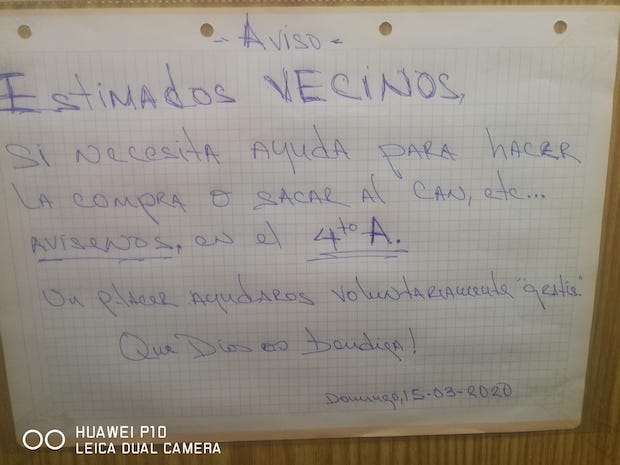 - Aviso -
Estimados VECINOS,
Si necesita ayuda para hacer
la compra o sacar al can, etc...
avisenos, en el 4to A.
Un placer ayudaros voluntariamente "gratis".
Que Dios os bendiga!
Domingo, 15-03-2020
HUAWEI P10
LEICA DUAL CAMERA